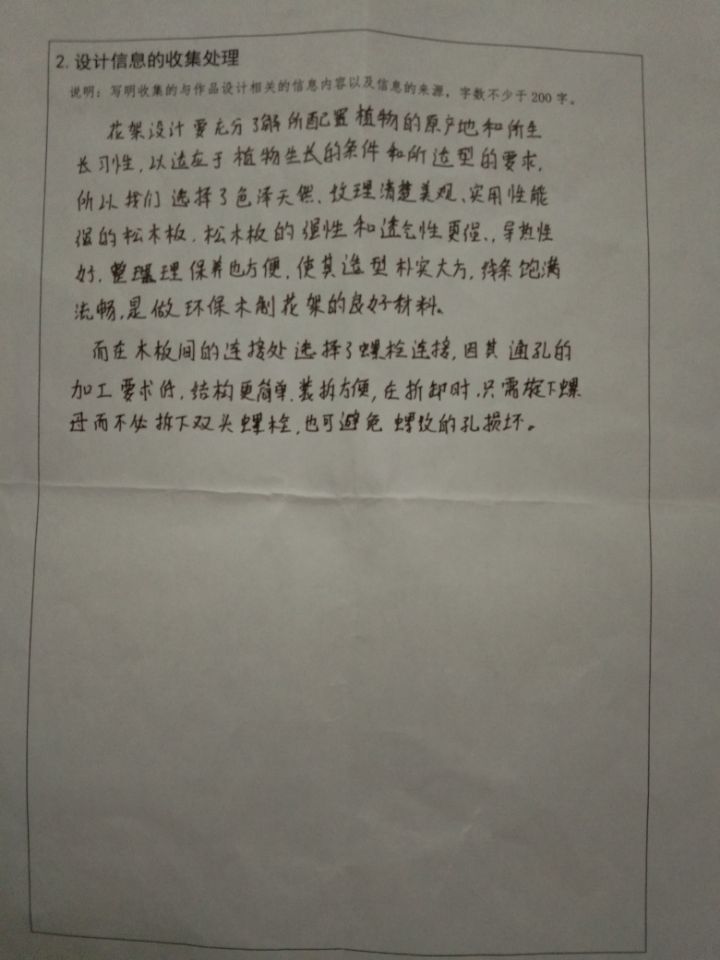 2. 设计信息的收集处理
说明：写明收集的与作品设计相关的信息内容以及信息的来源，字数不少于200字。
花架设计要充分了解所配置植物的原产地和所生
长习性，以适应于植物生长的条件和所造型的要求，
所以我们选择了色泽天然、纹理清楚美观、实用性能
强的松木板，松木板的强性和透气性更强、导热性
好，整理保养也方便，使其造型朴实大方，线条饱满
流畅，是做环保木制花架的良好材料。
而在木板间的连接处选择了螺栓连接，因其通孔的
加工要求低，结构更简单，装拆方便，在拆卸时，只需旋下螺
母而不必拆下双头螺栓，也可避免螺纹的孔损坏。